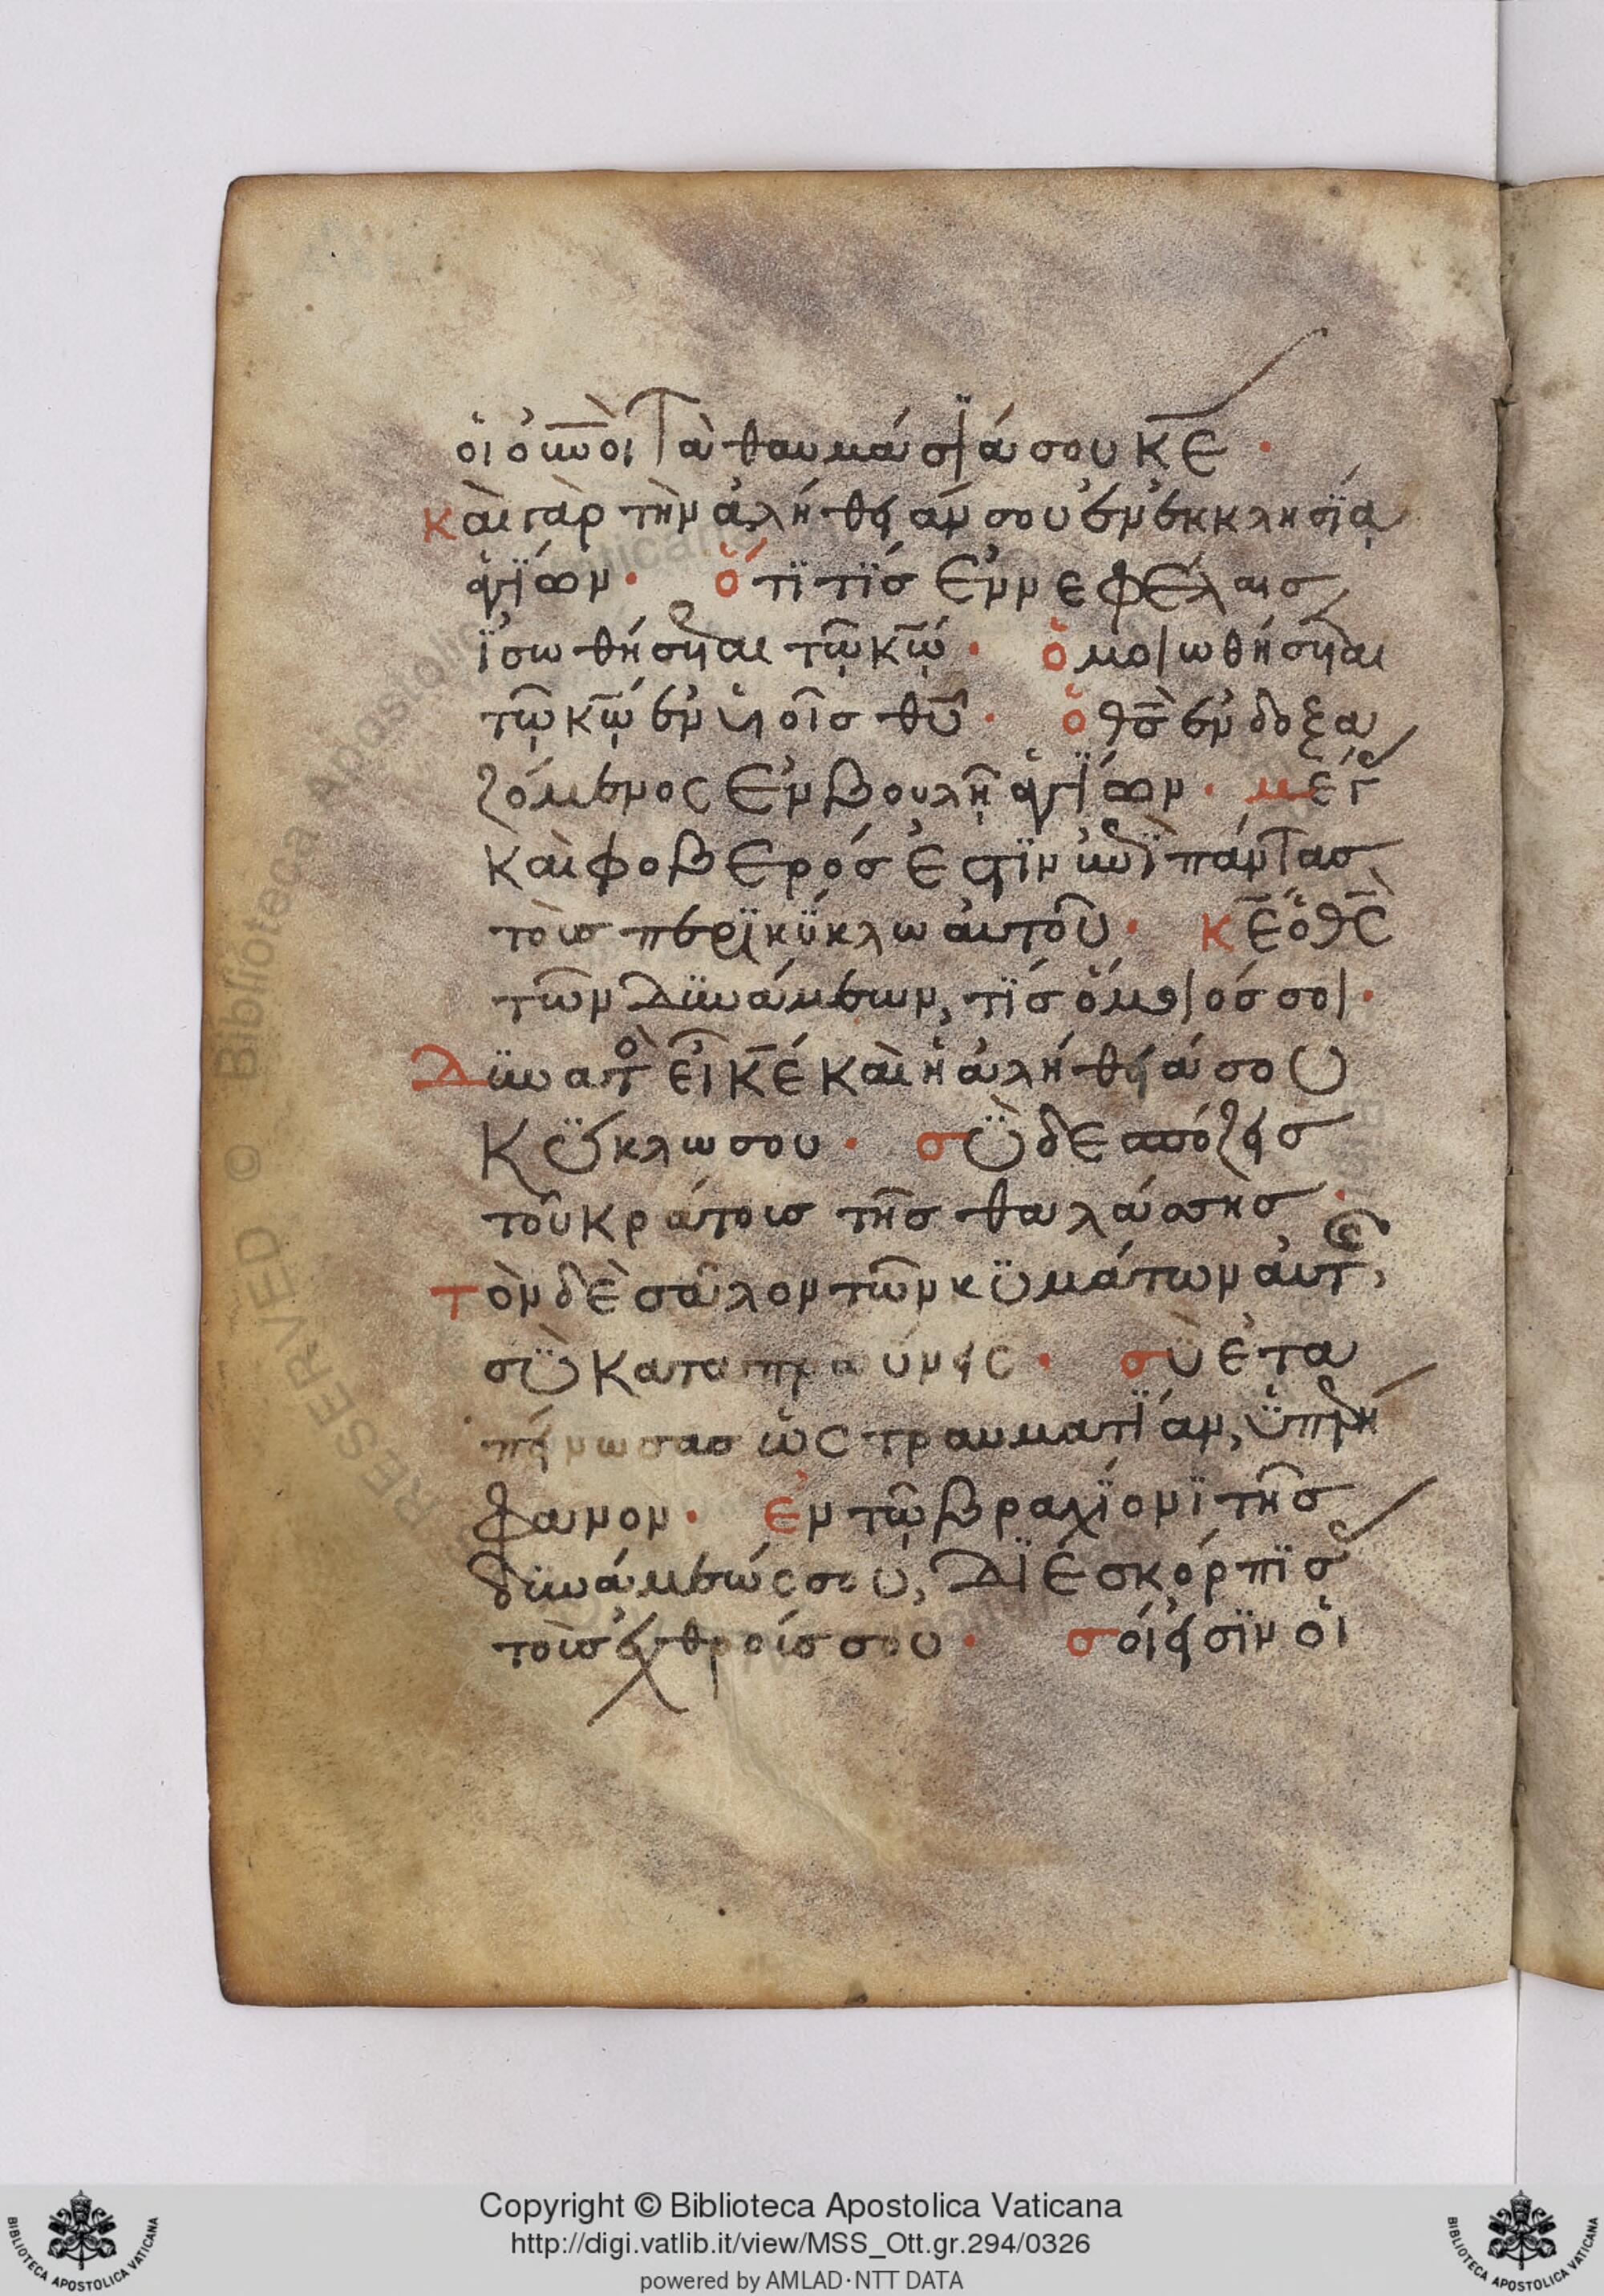 οἱ οὐνοὶ τὰ θαυμάσϊά σου κε ·
καὶ γὰρ τὴν ἀλήθειάν σου ἐν ἐκκλησΐᾳ
ἁγΐων · ὅτϊ τϊσ ἐν νεφέλαισ
ϊσωθήσεται τῶ κῶ · ὁμοιωθήσεται
τῶ κῶ ἐν υἱοῖσ θυ · ὁ θσ ἐνδοξα
ζόμενος ἐν βουλῆ ἁγΐων · μέγ
καὶ φοβερόσ ἐστϊν ἐπϊ πάντασ
τοὺσ περϊκύκλω αὐτοῦ · κε ὁ θς
τῶν δϋνάμεων, τΐσ ὅμοιόσ σοι ·
Δϋνατὸ εἶ κε καὶ ἡ ἀλήθειά σου
κϋκλω σου · σϋ δεσπόζεισ
τοῦ κράτουσ τῆσ θαλάσσησ ·
τὸν δὲ σάλον τῶν κϋμάτων αὐτῆσ,
σϋ καταπραΰνεις · σὺ ἐτα
πείνωσασ ὡς τραυματΐαν, ϋπερή
φανον · ἐν τῶ βραχΐονϊ τῆσ
δϋνάμεώς σου, Δϊεσκόρπϊσ
τοὺσ ἐχθρούσ σου · σοί εισϊν οἱ
Copyright © Biblioteca Apostolica Vaticana
http://digi.vatlib.it/view/MSS_Ott.gr.294/0326
powered by AMLAD·NTT DATA
BIBLIOTECA APOSTOLICA VATICANA
BIBLIOTECA APOSTOLICA VATICANA